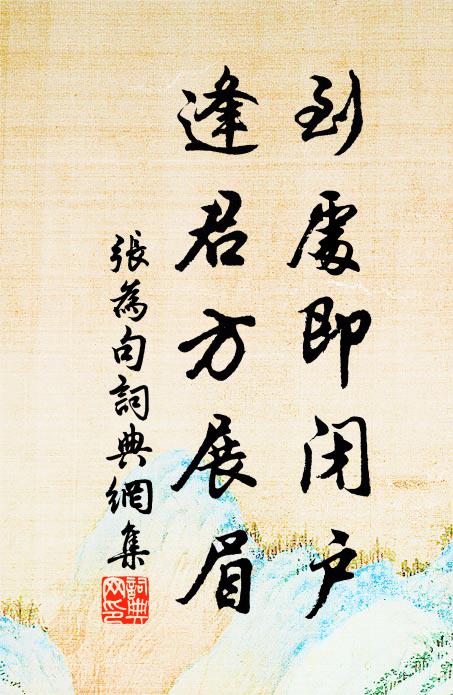 到處即閉户
逢君方展眉
張為句詞典網集
詞典网印